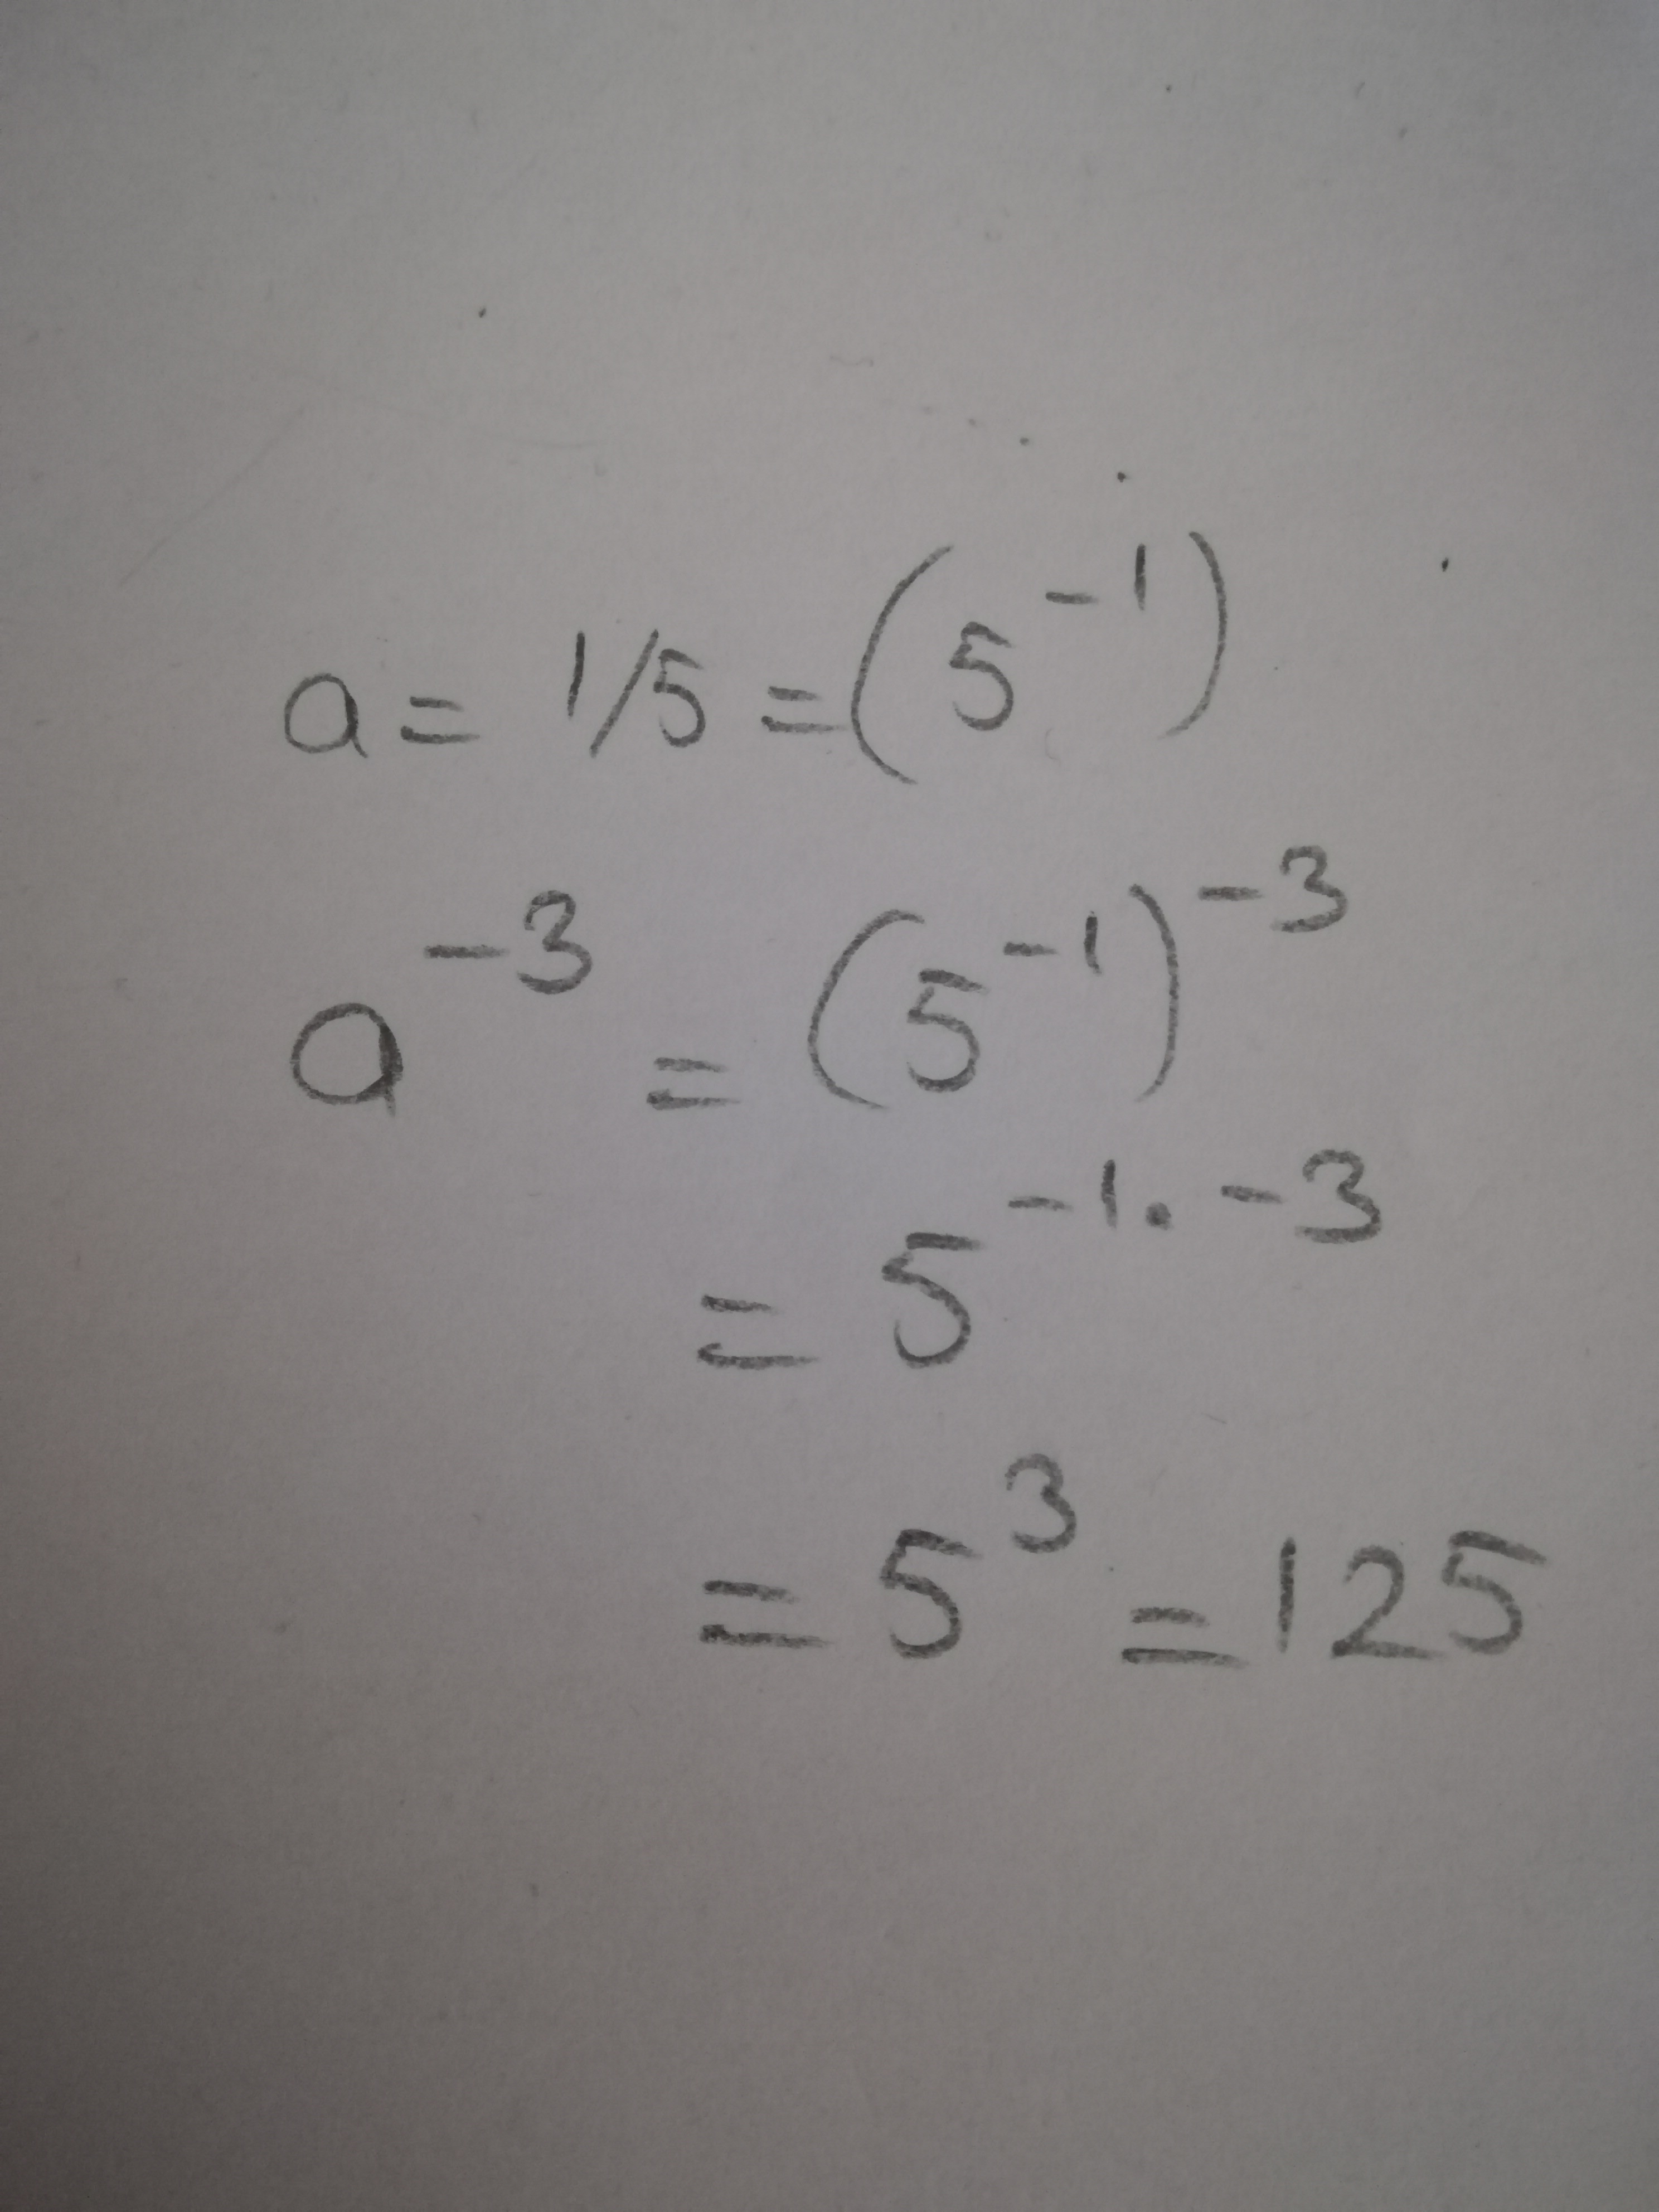 a = 1/5 = (5⁻¹)
a⁻³ = (5⁻¹)⁻³
= 5⁻¹·⁻³
= 5³ = 125